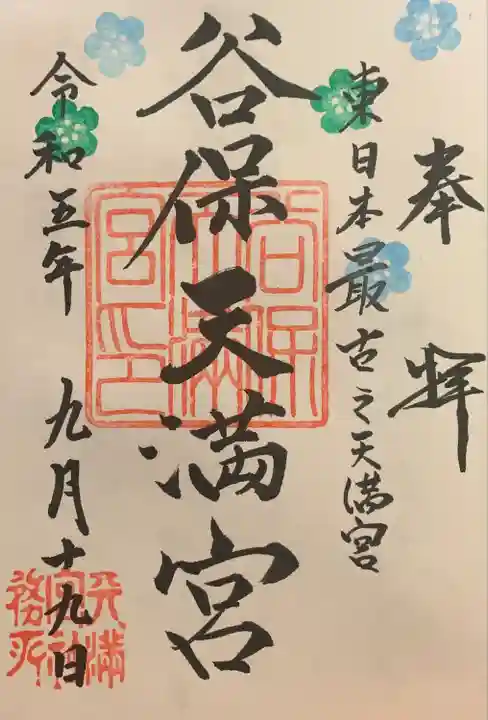 奉拝
東日本最古之天満宮
谷保天満宮
令和五年 九月十九日
谷保
天満
宮印
天満
宮社
務所